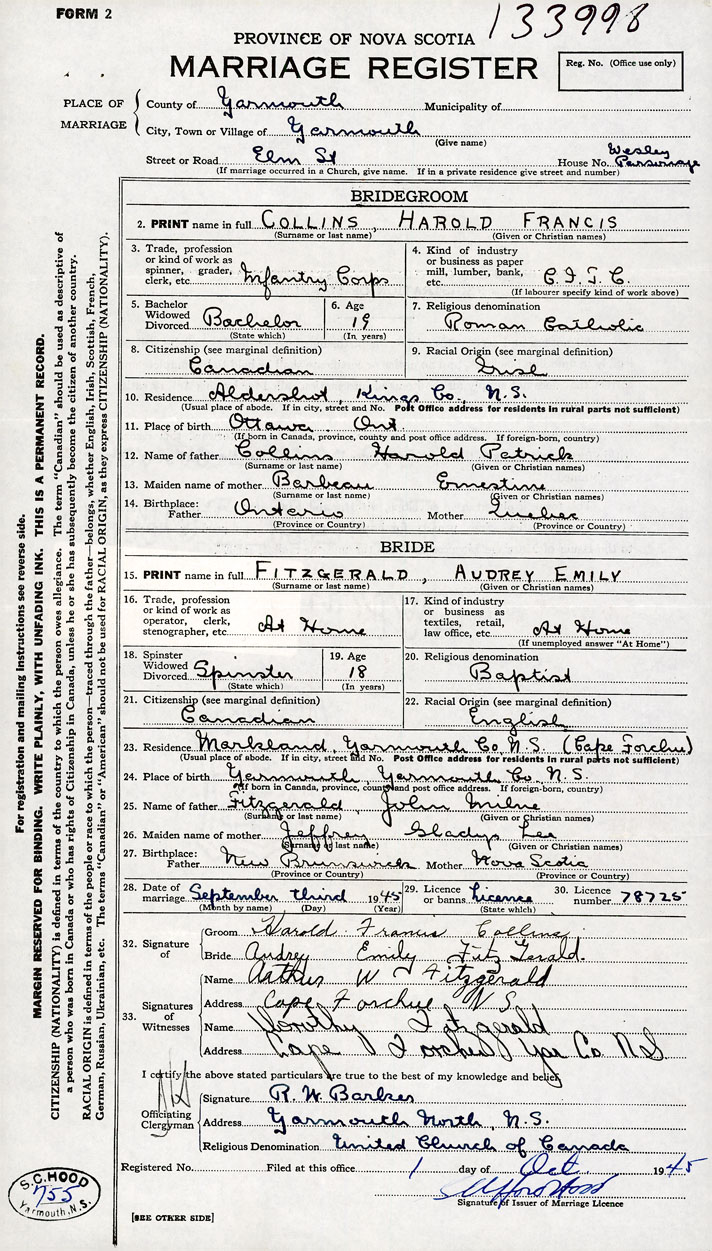 FORM 2
133998
PROVINCE OF NOVA SCOTIA
MARRIAGE REGISTER
Reg. No. (Office use only)
PLACE OF MARRIAGE
County of Yarmouth Municipality of
City, Town or Village of Yarmouth
(Give name)
Street or Road Elm St House No. Wesley Parsonage
(If marriage occurred in a Church, give name. If in a private residence give street and number)
BRIDEGROOM
2. PRINT name in full COLLINS, HAROLD FRANCIS
(Surname or last name) (Given or Christian names)
3. Trade, profession or kind of work as spinner, grader, clerk, etc. Infantry Corps
4. Kind of industry or business as paper mill, lumber, bank, etc. C. I. T. C.
(If labourer specify kind of work above)
5. Bachelor Widowed Divorced Bachelor
(State which)
6. Age 19
(In years)
7. Religious denomination
Roman Catholic
8. Citizenship (see marginal definition)
Canadian
9. Racial Origin (see marginal definition)
Irish
10. Residence Aldershot, Kings Co., N.S.
(Usual place of abode. If in city, street and No. Post Office address for residents in rural parts not sufficient)
11. Place of birth Ottawa Ont
(If born in Canada, province, county and post office address. If foreign-born, country)
12. Name of father Collins Harold Patrick
(Surname or last name) (Given or Christian names)
13. Maiden name of mother Barbeau Ernestine
(Surname or last name) (Given or Christian names)
14. Birthplace: Father Ontario Mother Quebec
(Province or Country) (Province or Country)
BRIDE
15. PRINT name in full FITZGERALD, AUDREY EMILY
(Surname or last name) (Given or Christian names)
16. Trade, profession or kind of work as operator, clerk, stenographer, etc. At Home
17. Kind of industry or business as textiles, retail, law office, etc. At Home
(If unemployed answer "At Home")
18. Spinster Widowed Divorced Spinster
(State which)
19. Age 18
(In years)
20. Religious denomination
Baptist
21. Citizenship (see marginal definition)
Canadian
22. Racial Origin (see marginal definition)
English
23. Residence Markland, Yarmouth Co. N.S. (Cape Forchu)
(Usual place of abode. If in city, street and No. Post Office address for residents in rural parts not sufficient)
24. Place of birth Yarmouth, Yarmouth Co. N.S.
(If born in Canada, province, county and post office address. If foreign-born, country)
25. Name of father Fitzgerald, John Milne
(Surname or last name) (Given or Christian names)
26. Maiden name of mother Jeffrey Gladys Lee
(Surname or last name) (Given or Christian names)
27. Birthplace: Father New Brunswick Mother Nova Scotia
(Province or Country) (Province or Country)
28. Date of marriage September third 1945
(Month by name) (Day) (Year)
29. Licence or banns Licence
(State which)
30. Licence number 78725
32. Signature of
Groom Harold Francis Collins
Bride Audrey Emily Fitz Gerald.
33. Signatures of Witnesses
Name Arthur W Fitzgerald
Address Cape Forchue, N S.
Name Dorothy Fitzgerald
Address Cape Forchu Yar Co. N.S
I certify the above stated particulars are true to the best of my knowledge and belief
Officiating Clergyman
Signature R. W. Barker
Address Yarmouth North, N.S.
Religious Denomination United Church of Canada
Registered No. Filed at this office 1 day of Oct 1945
Signature of Issuer of Marriage Licence
[SEE OTHER SIDE]
S. C. HOOD
755
Yarmouth, N.S.
For registration and mailing instructions see reverse side.
MARGIN RESERVED FOR BINDING. WRITE PLAINLY, WITH UNFADING INK. THIS IS A PERMANENT RECORD.
CITIZENSHIP (NATIONALITY) is defined in terms of the country to which the person owes allegiance. The term "Canadian" should be used as descriptive of
a person who was born in Canada or who has rights of Citizenship in Canada, unless he or she has subsequently become the citizen of another country.
RACIAL ORIGIN is defined in terms of the people or race to which the person—traced through the father—belongs, whether English, Irish, Scottish, French,
German, Russian, Ukrainian, etc. The terms "Canadian" or "American" should not be used for RACIAL ORIGIN, as they express CITIZENSHIP (NATIONALITY).